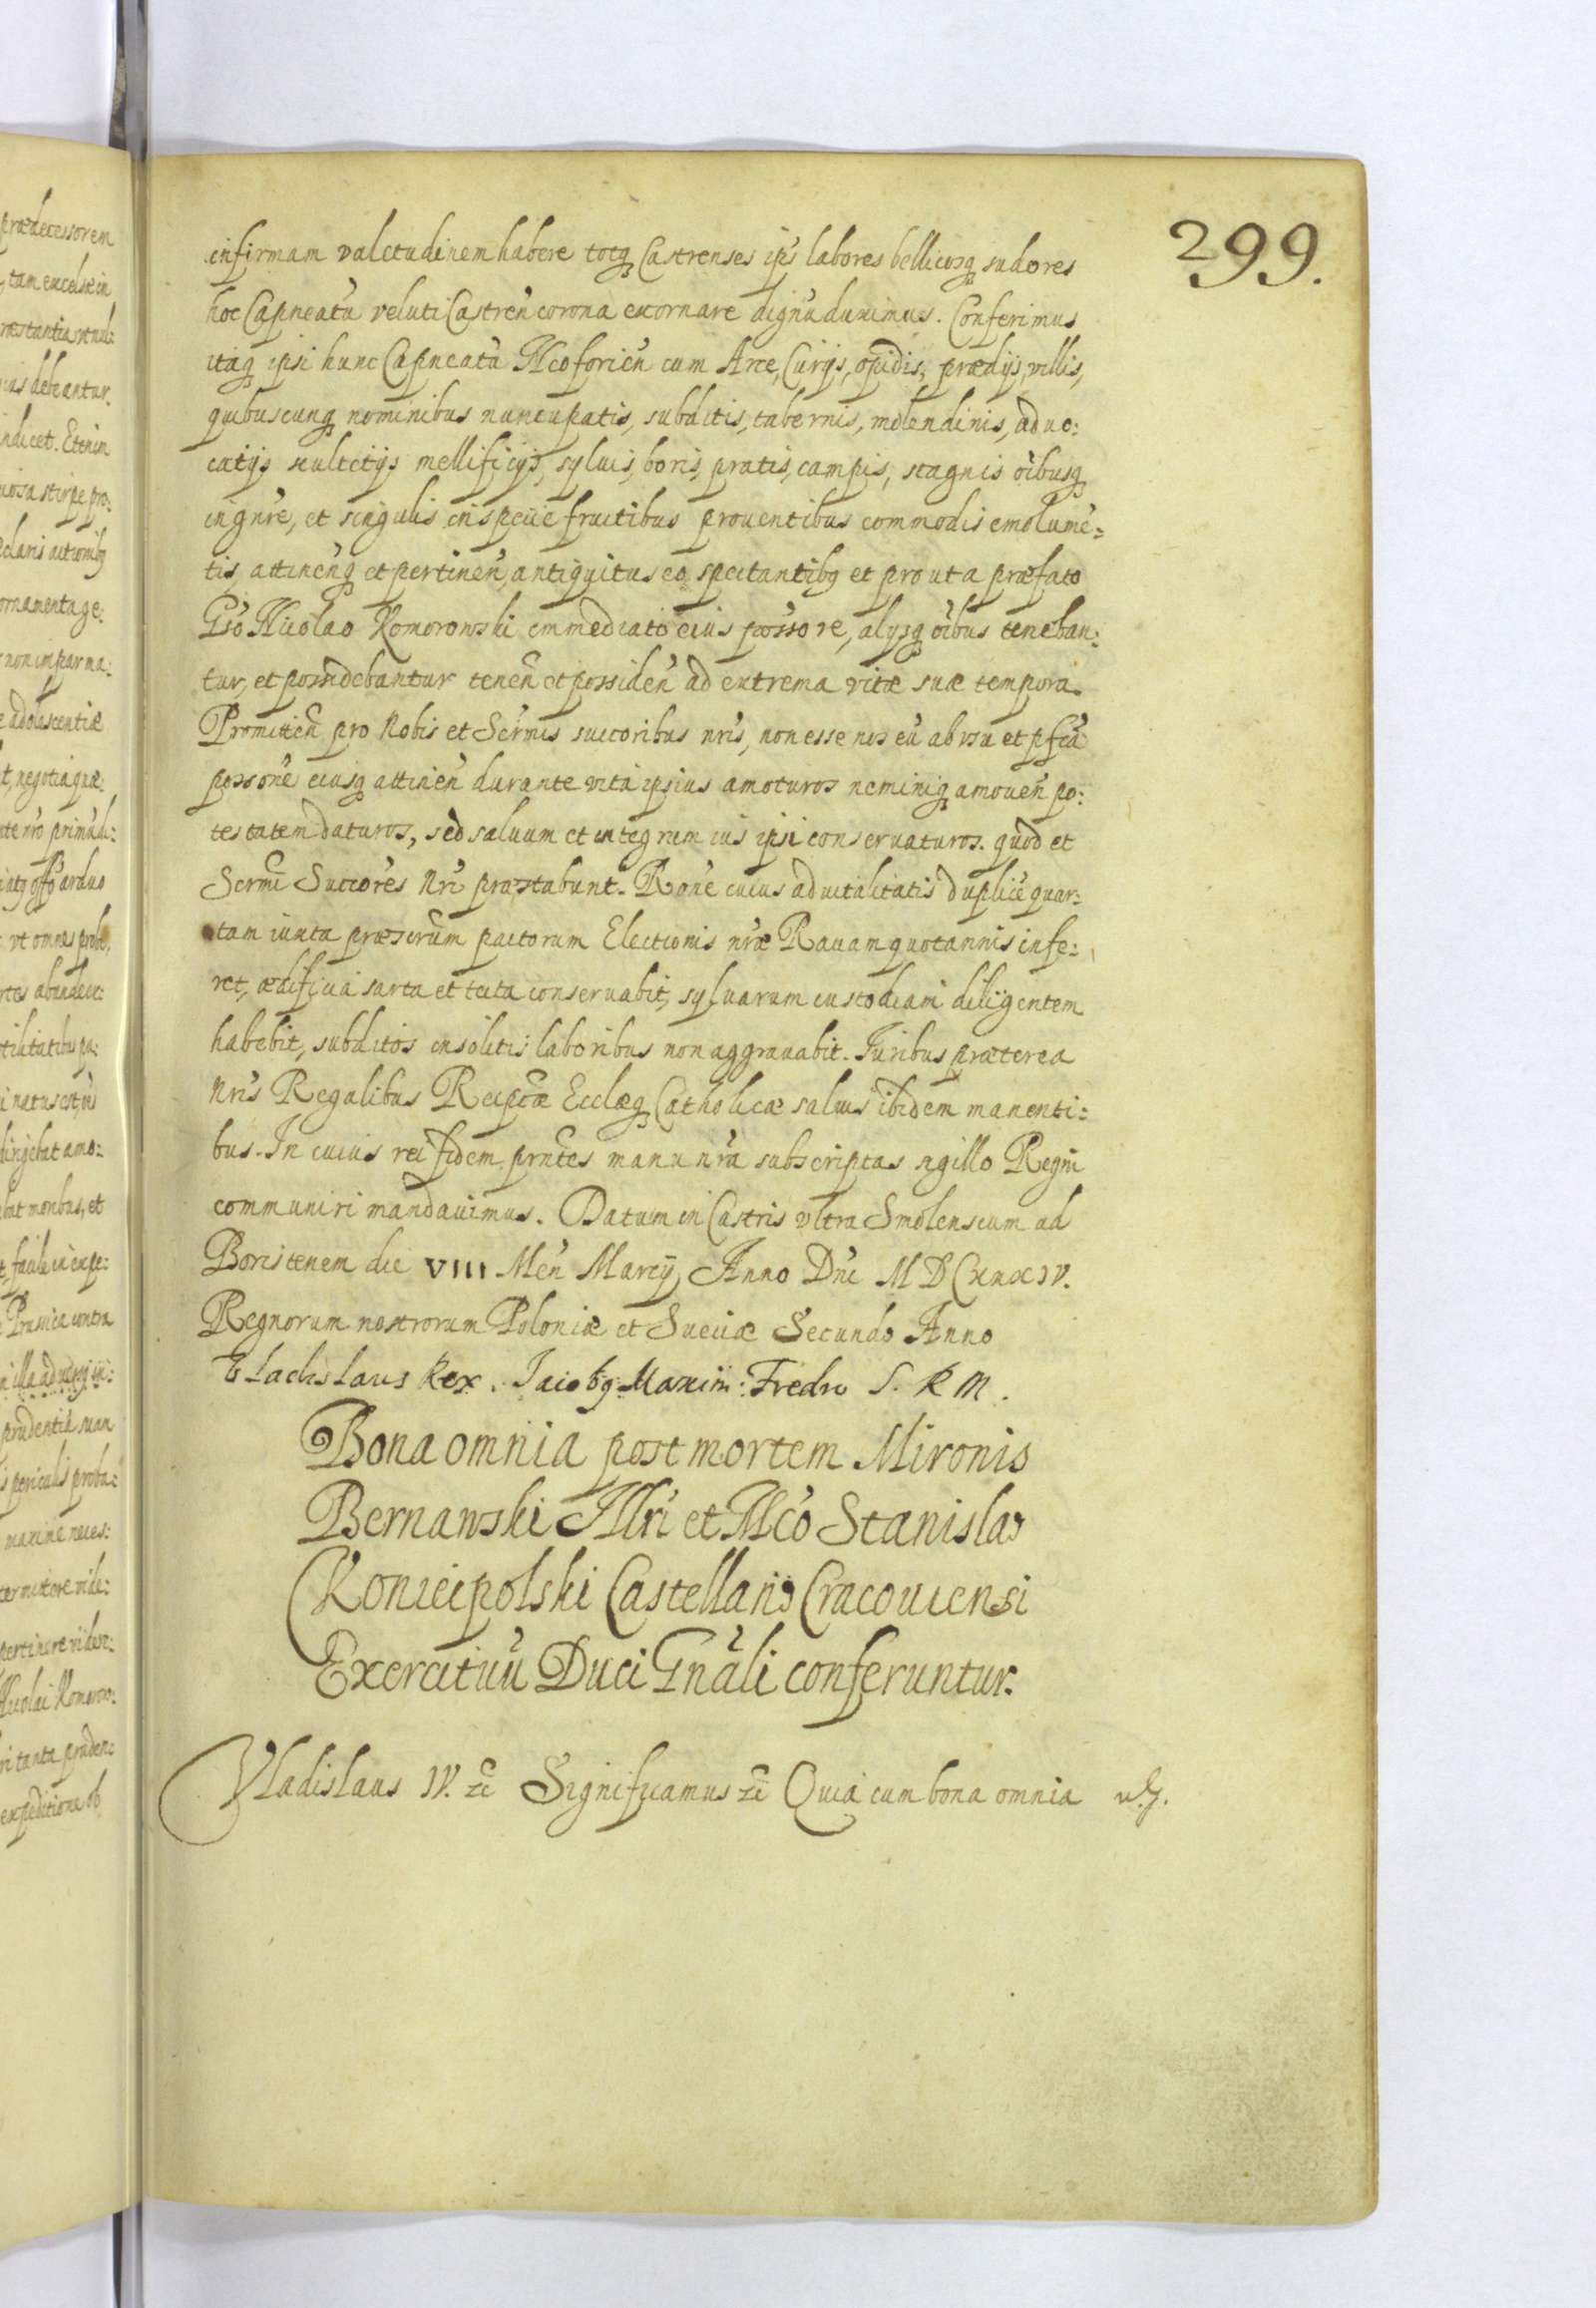 299.
infirmam valetudinem habere totq́ Castrenses ips̄ labores bellicosq́ sudores
hoc Capneatū veluti Castren̄ corona exornare dignū duximus. Conferimus
itaq́ ipsi hunc Capneatū Osieforien̄ cum Arce, Curijs, opidis, prædijs, villis,
quibuscunq́ nominibus nuncupatis, subditis, tabernis, molendinis, aduo:
catijs scultetijs mellificijs, syluis, boris, pratis, campis, stagnis oībusq́
in gn̄re, et singulis in spe͞cie fructibus prouentibus commodis emolumē:
tis attinenq́ et pertinen̄, antiquitus eo spectantibq́ et prout a præfato
Gso͞ Nicolao Komorowski immediato eius possore, alijsq́ oībus teneban:
tur, et possidebantur tenen̄ et possiden̄ ad extrema vitæ suæ tempora.
Promitten̄ pro Nobis et Serm̄is succoribus nr̄is, non esse nos eū ab vsu et pfcā
possone͞ eiusq́ attinen̄ durante vita ipsius amoturos neminiq́ amouen̄ po:
testatem daturos, sed saluum et integrum ius ipsi conseruaturos. quod et
Serm̄i Succores̄ Nr̄i præstabunt. Rone͞ cuius aduitalitatis duplicē quar:
tam iuxta præscr͞um pactorum Electionis nr̄æ Rauam quotannis infe:
ret, ædificia sarta et tecta conseruabit, syluarum custodiam diligentem
habebit, subditos insolitis laboribus non aggrauabit. Iuribus præterea
Nr̄is Regalibus Reip͞cæ Ecclæq́ Catholicæ saluis ibidem manenti:
bus. In cuius rei fidem pr͞ntes manu nr̄a subscriptas sigillo Regni
communiri mandauimus. Datum in Castris vltra Smolenscum ad
Boristenem die VIII Men̄ Marcij Anno Dn̄i MDCXXXIV.
Regnorum nostrorum Poloniæ et Sueciæ Secundo Anno
Vladislaus Rex. Jacobq́ Maxim: Fredro S. R M.
Bona omnia post mortem Mironis
Bernawski Illr̄i et Mc͞o Stanislao
Koniecpolski Castellano Cracouiensi
Exercituū Duci Gn̄ali conferuntur.
Vladislaus IV. &c Significamus &c Quia cum bona omnia